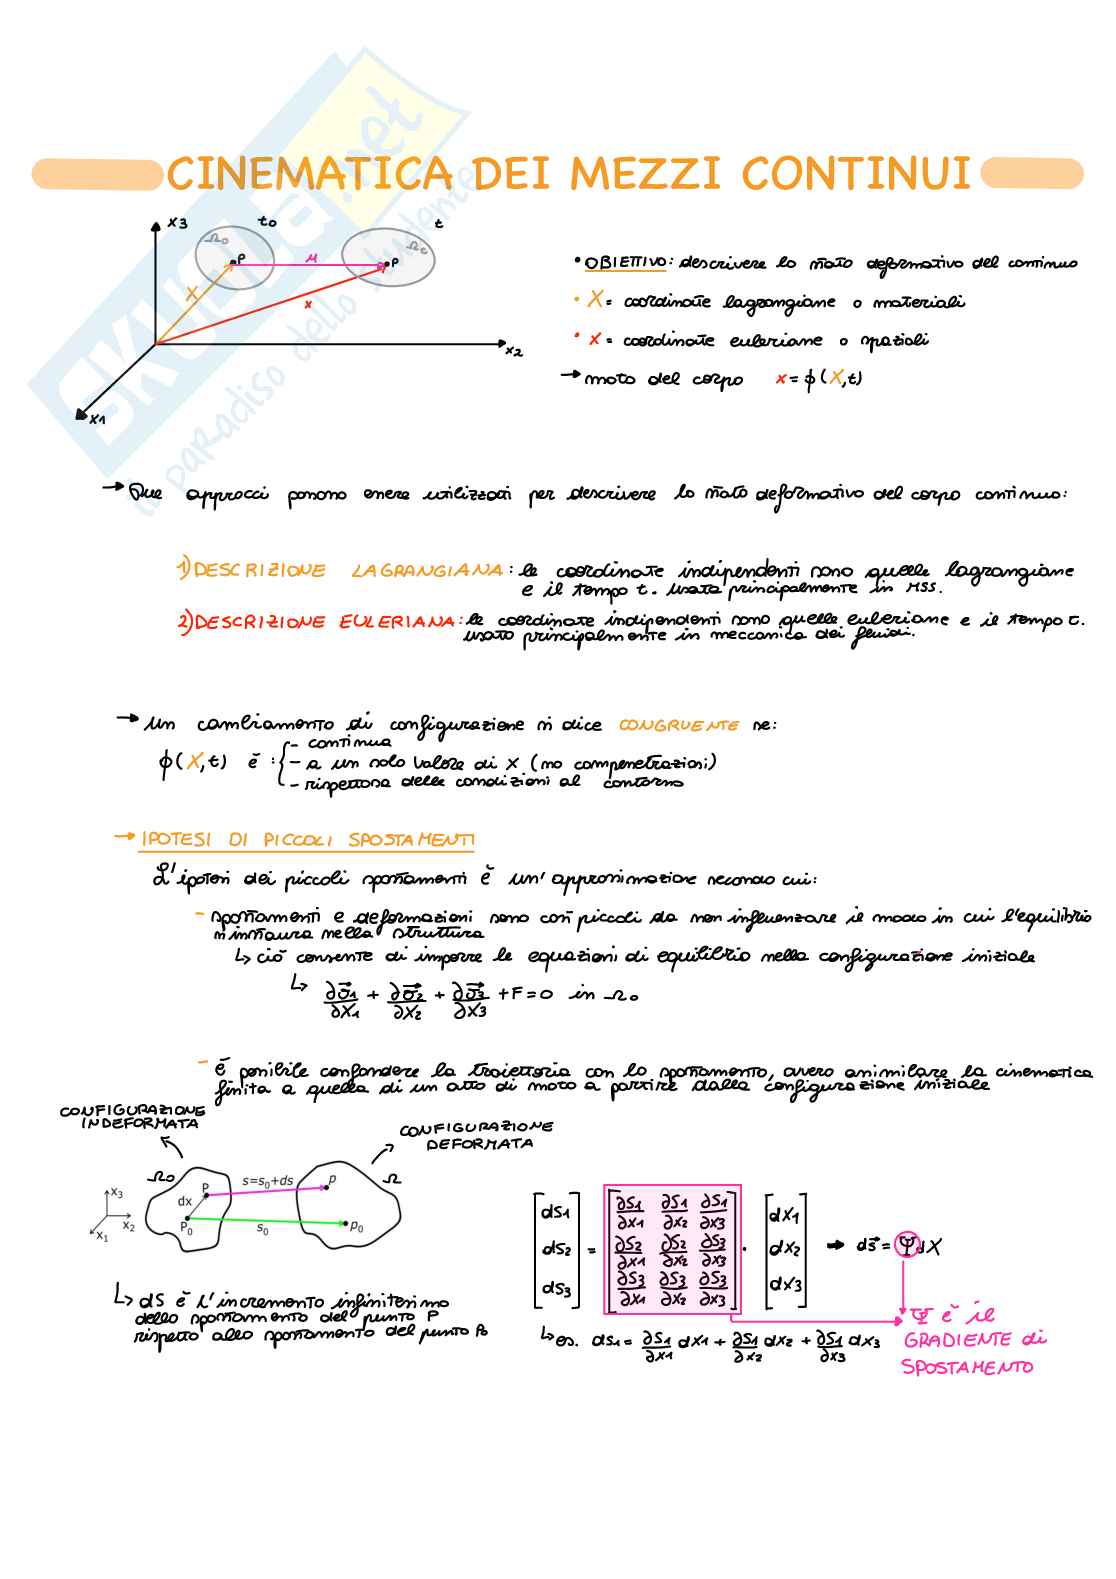 CINEMATICA DEI MEZZI CONTINUI
SKUOLA.net
il paradiso dello studente
x3
to
t
Ω0
P
u
P
Ωt
X
x
x2
x1
• OBIETTIVO: descrivere lo stato deformativo del continuo
• X = coordinate lagrangiane o materiali
• x = coordinate euleriane o spaziali
→ moto del corpo x = ϕ(X,t)
→ Due approcci possono essere utilizzati per descrivere lo stato deformativo del corpo continuo:
1) DESCRIZIONE LAGRANGIANA: le coordinate indipendenti sono quelle lagrangiane
e il tempo t. Usata principalmente in MSS.
2) DESCRIZIONE EULERIANA: le coordinate indipendenti sono quelle euleriane e il tempo t.
usato principalmente in meccanica dei fluidi.
→ Un cambiamento di configurazione si dice CONGRUENTE se:
ϕ(X,t) è : { - continua
- a un solo valore di x (no compenetrazioni)
- rispettosa delle condizioni al contorno
→ IPOTESI DI PICCOLI SPOSTAMENTI
L'ipotesi dei piccoli spostamenti è un'approssimazione secondo cui:
- spostamenti e deformazioni sono così piccoli da non influenzare il modo in cui l'equilibrio
si instaura nella struttura
↳ ciò consente di imporre le equazioni di equilibrio nella configurazione iniziale
↳ ∂σ⃗1/∂X1 + ∂σ⃗2/∂X2 + ∂σ⃗3/∂X3 + F = 0 in Ω0
- è possibile confondere la traiettoria con lo spostamento, ovvero assimilare la cinematica
finita a quella di un atto di moto a partire dalla configurazione iniziale
CONFIGURAZIONE
INDEFORMATA
CONFIGURAZIONE
DEFORMATA
Ω0
Ω
P
s=s0+ds
p
dx
P0
s0
p0
x3
x2
x1
[ds1 ds2 ds3] = [∂S1/∂x1 ∂S1/∂x2 ∂S1/∂x3
∂S2/∂x1 ∂S2/∂x2 ∂S3/∂x3
∂S3/∂x1 ∂S3/∂x2 ∂S3/∂x3] · [dX1 dX2 dX3] → ds⃗ = Ψ dX
↳ dS è l'incremento infinitesimo
dello spostamento del punto P
rispetto allo spostamento del punto P0
↳ es. ds1 = ∂S1/∂x1 dx1 + ∂S1/∂x2 dx2 + ∂S1/∂x3 dx3
Ψ è il
GRADIENTE di
SPOSTAMENTO